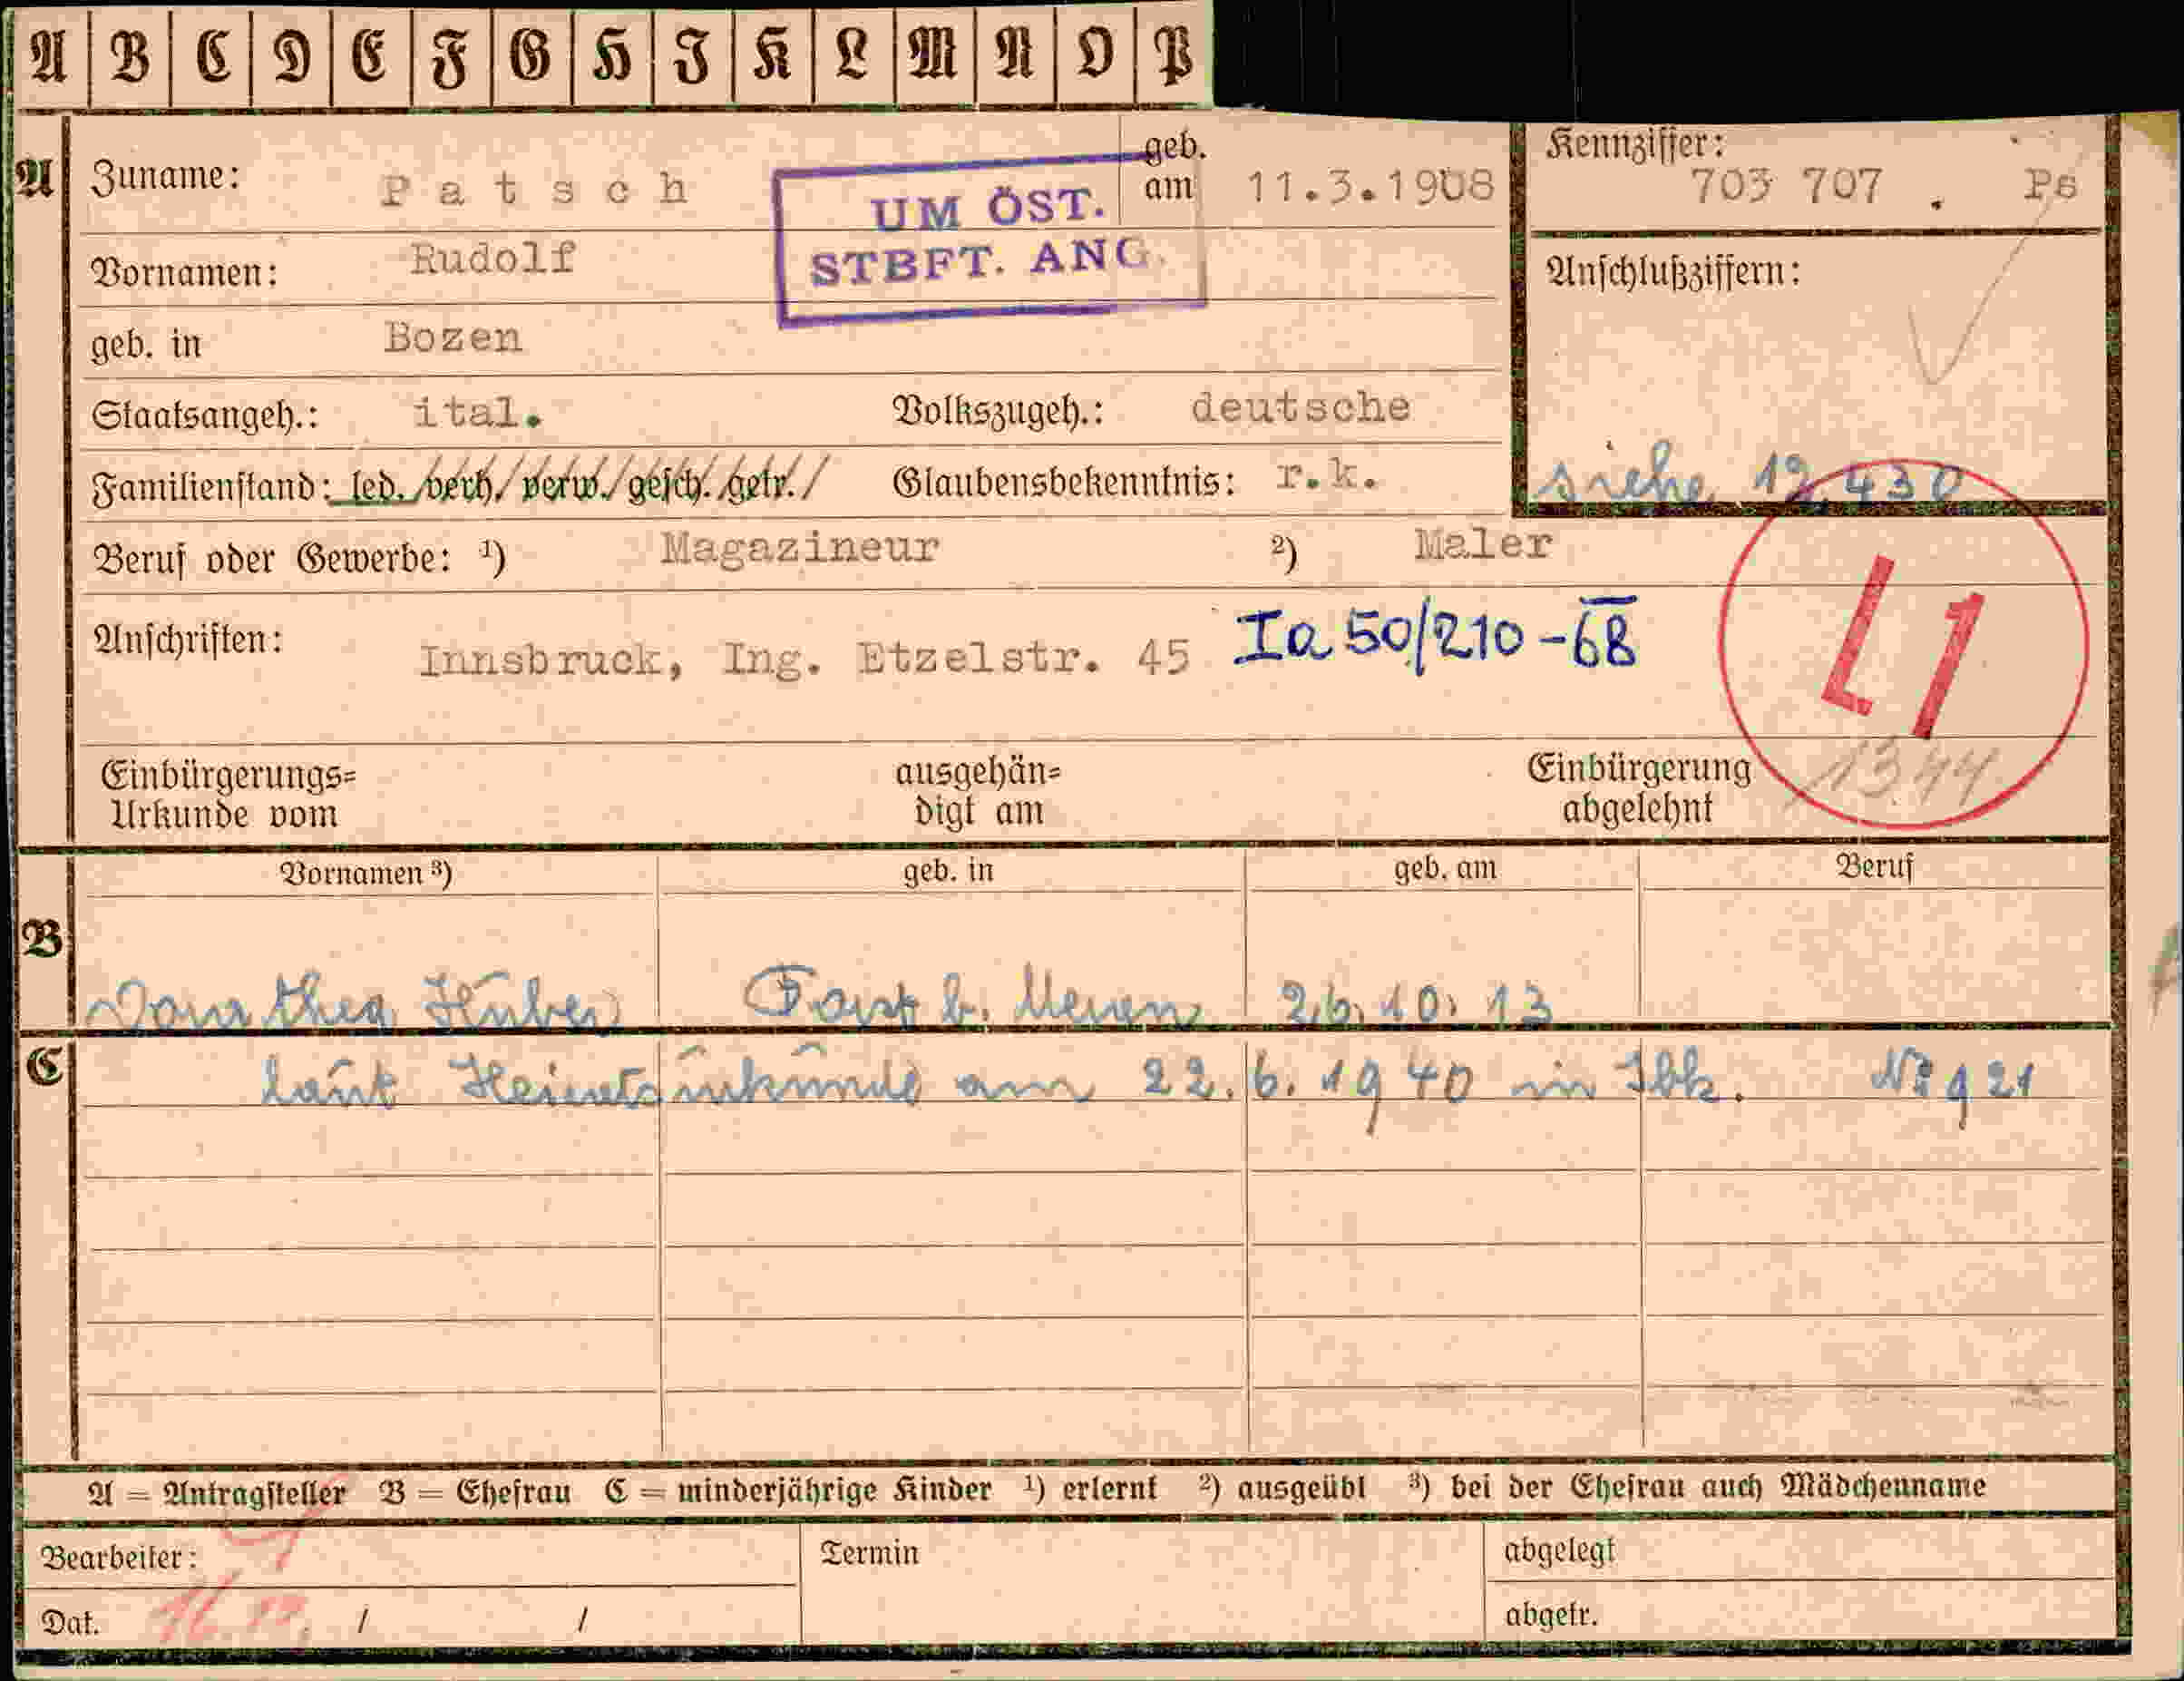 A B C D E F G H I K L M N O P
A Zuname: Patsch geb. am 11.3.1908 Kennziffer: 703 707 . Ps
UM ÖST.
STBFT. ANG.
Vornamen: Rudolf Anschlußziffern:
geb. in Bozen
Staatsangeh.: ital. Volkszugeh.: deutsche
Familienstand: led. / verh. / verw. / gesch. / getr. / Glaubensbekenntnis: r.k. siehe 12.430
Beruf oder Gewerbe: 1) Magazineur 2) Maler
L1
Anschriften: Innsbruck, Ing. Etzelstr. 45 Ia 50/210-68
1344
Einbürgerungs= ausgehän= Einbürgerung
Urkunde vom digt am abgelehnt
Vornamen 3) geb. in geb. am Beruf
B Dorothea Huber Forst b. Meran 26.10.13
C laut Heiratsurkunde am 22.6.1940 in Ibk. No 921
A = Antragsteller B = Ehefrau C = minderjährige Kinder 1) erlernt 2) ausgeübt 3) bei der Ehefrau auch Mädchenname
Bearbeiter: Termin abgelegt
Dat. / / abgetr.